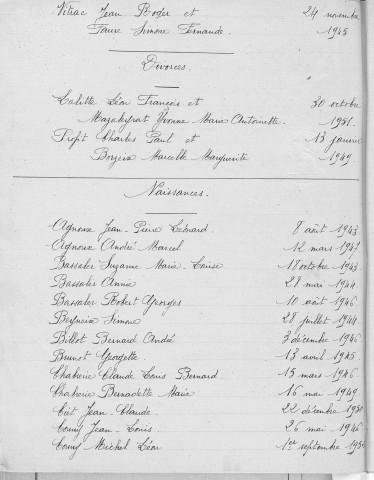 Vitrac Jean Roger et 24 novembre
Faure Simone Fernande. 1945
Divorces.
Lalitte Léon François et 30 octobre
Mazaleyrat Yvonne Marie Antoinette. 1951.
Profit Charles Paul et 13 janvier
Marcelle Marguerite 1949
Naissances.
Agnoux Jean-Pierre Léonard. 8 août 1943
Agnoux André Marcel 12 mars 1947
Bassaler Suzanne Marie-Louise 18 octobre 1943
Bassaler Annie 28 mai 1944
Bassaler Robert Georges 10 août 1946
Simone 28 juillet 1944
Billot Bernard André 3 décembre 1946
Brunot Georgette. 13 avril 1945
Chaberie Claude Louis Bernard 15 mars 1946
Chaberie Bernadette Marie 16 mai 1949
Jean Claude. 22 décembre 1950
Couny Jean-Louis. 26 mai 1946
Couny Michel Léon 1er septembre 1950